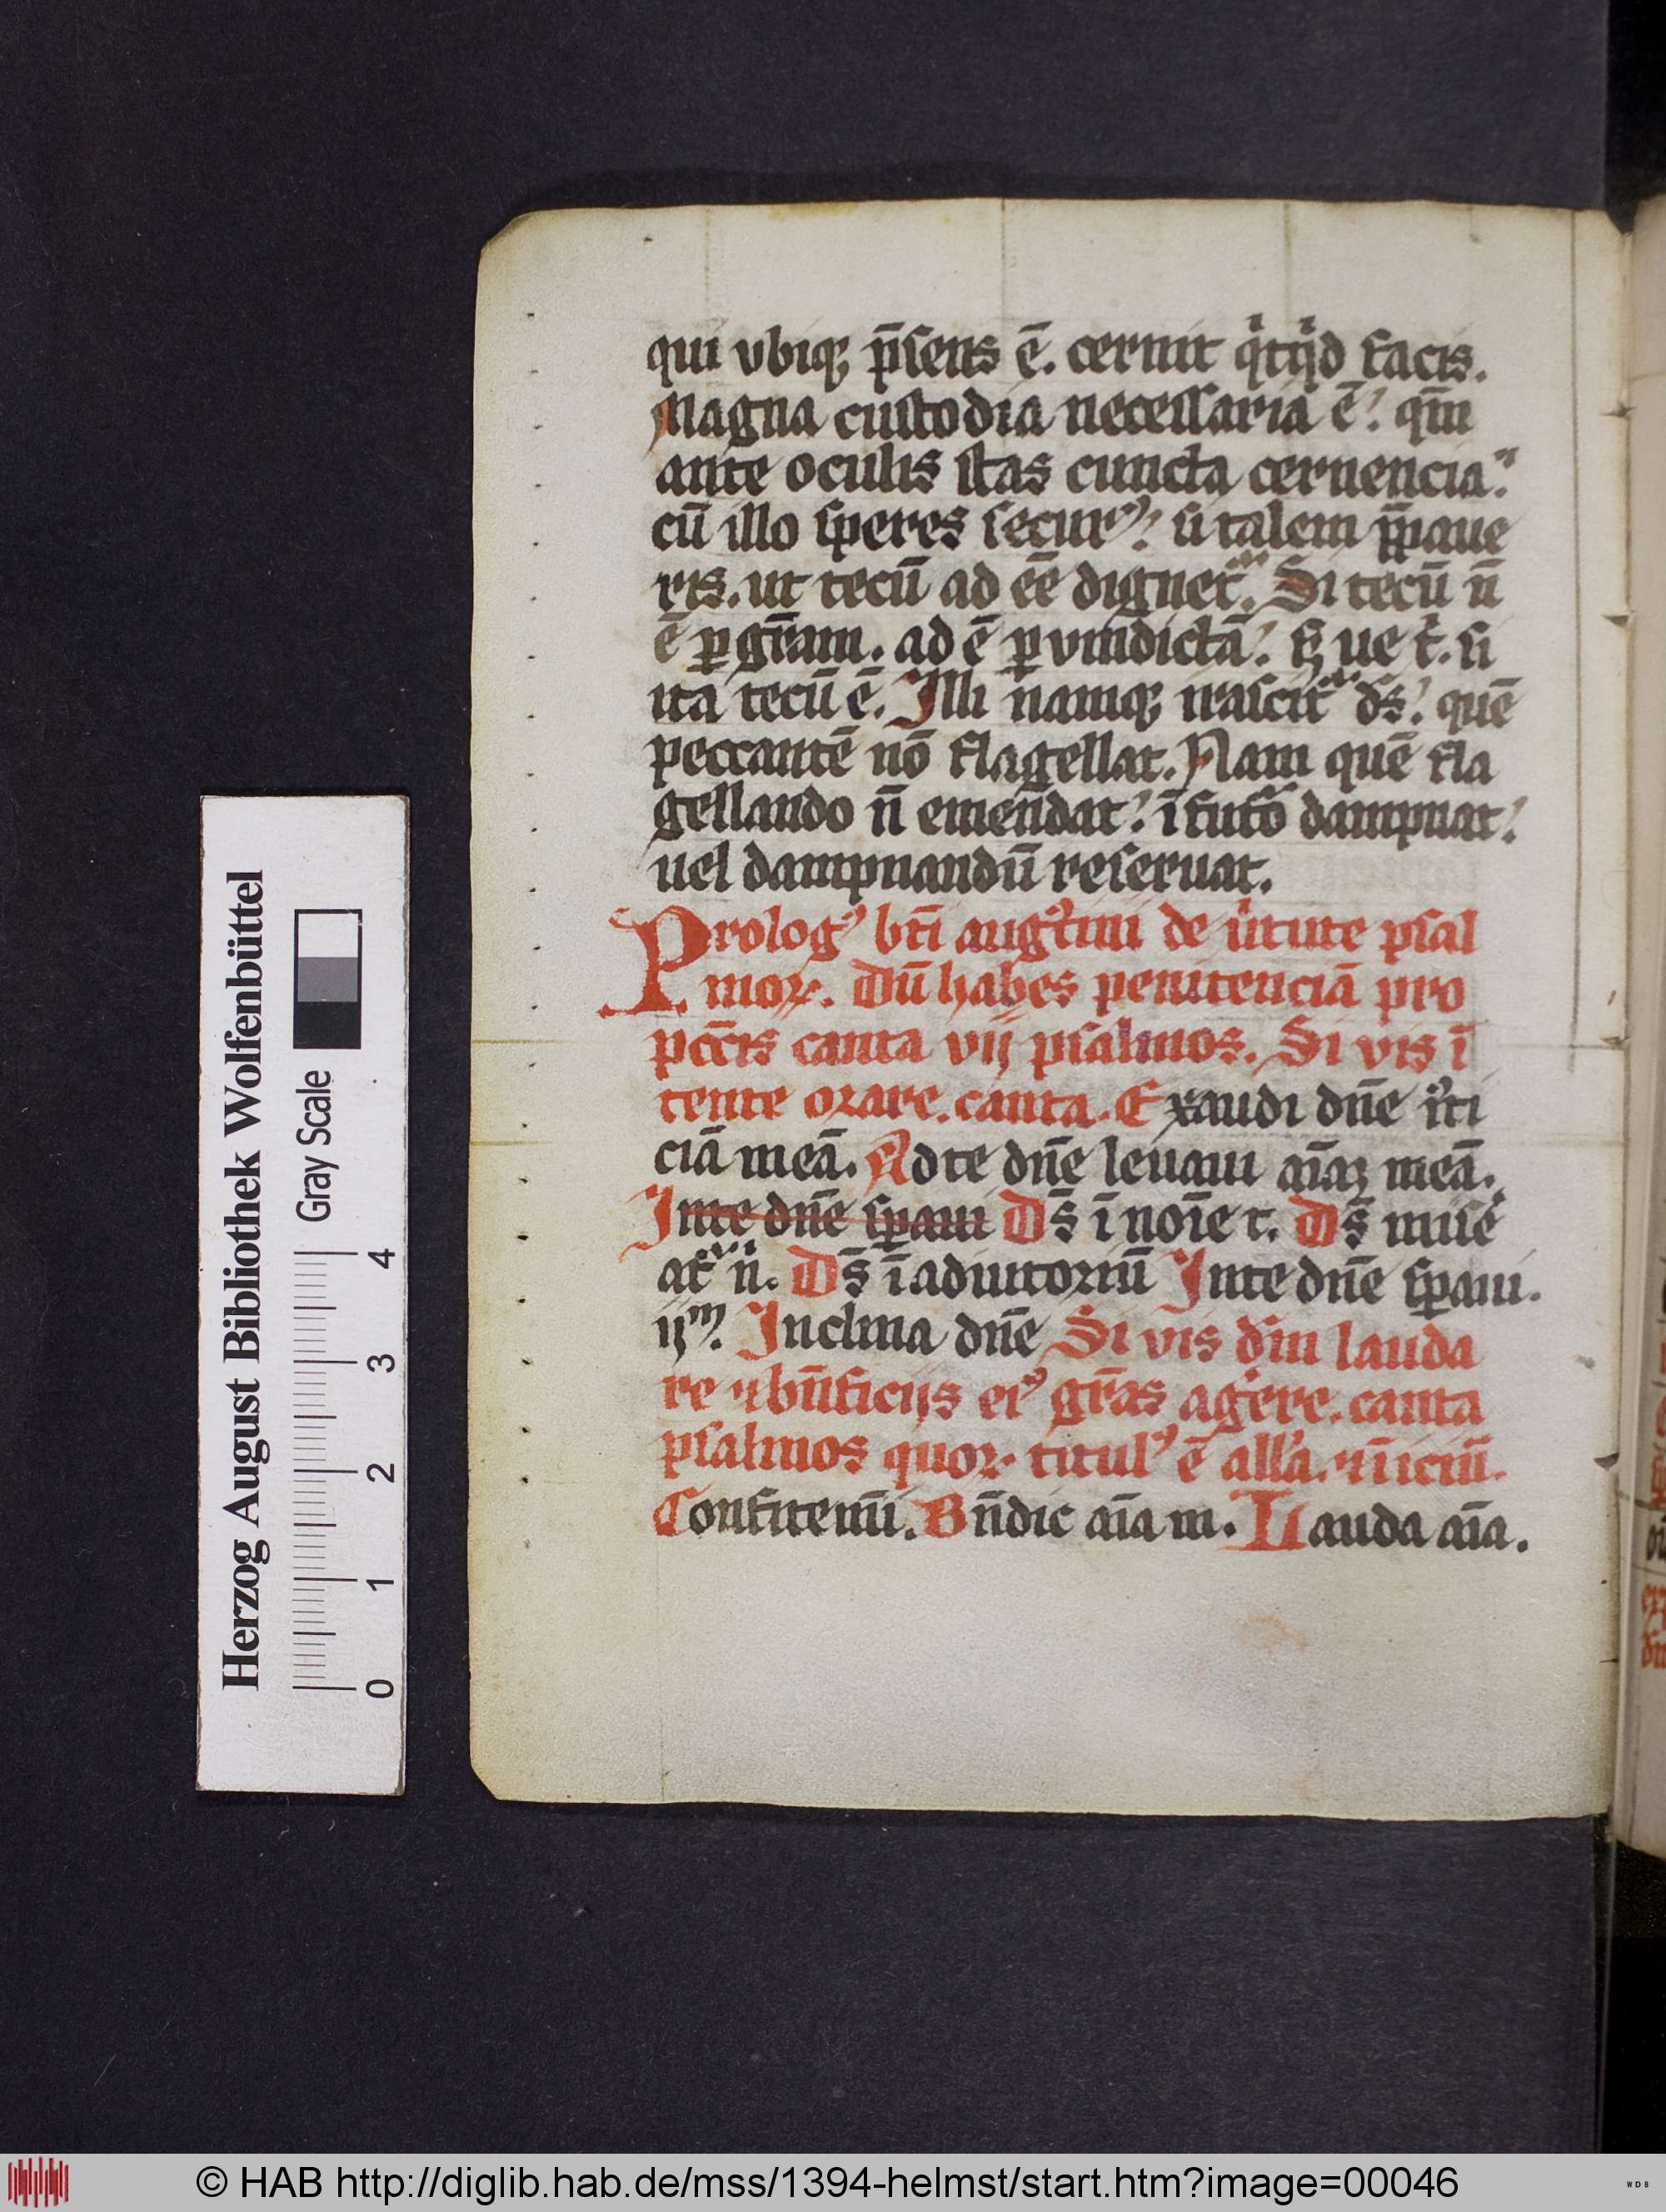 qui vbiq; p̄sens ē. cernit qͥtqͥd facis.
Magna custodia necessaria ē? qm̄
ante oculis stas cuncta cernencia.
cū illo speres securꝰ? si talem p̄paue
ris. ut tecū ad eē dignet᷑. Si tecū n̄
ē ꝑ gr̄am. ad ē ꝑ vindictā? ue t͛. si
ita tecū ē. Illi namq; irascit᷑ ds̄? quē
peccantē nō flagellat. Nam quē fla
gellando n̄ emendat? ī futo᷑ dampnat?
uel dampnandū reseruat.
Prologꝰ bt̄i augꝰtini de ũtute psal
moꝝ. Dū habes penitenciā pro
pc̄c̄is canta vij psalmos. Si vis ī
tente orare. canta. Exaudi dn̄e iꝰti
ciā meā. Ad te dn̄e leuaui aīaꝫ meā.
In te dn̄e sꝑaui Ds̄ ī noīe t. Ds̄ miſe᷑
at᷑ n. Ds̄ ī adiutoriū In te dn̄e sꝑaui.
ijᵐ. Inclina dn̄e Si vis dm̄ lauda
re ⁊ bn̄ficijs eiꝰ gr̄as agere. canta
psalmos quoꝝ titulꝰ ē all'a. ⁊ īiciū.
Confitemī. Bn̄dic aīa m. Lauda aīa.
Herzog August Bibliothek Wolfenbüttel
Gray Scale
0 1 2 3 4
© HAB http://diglib.hab.de/mss/1394-helmst/start.htm?image=00046
WDB